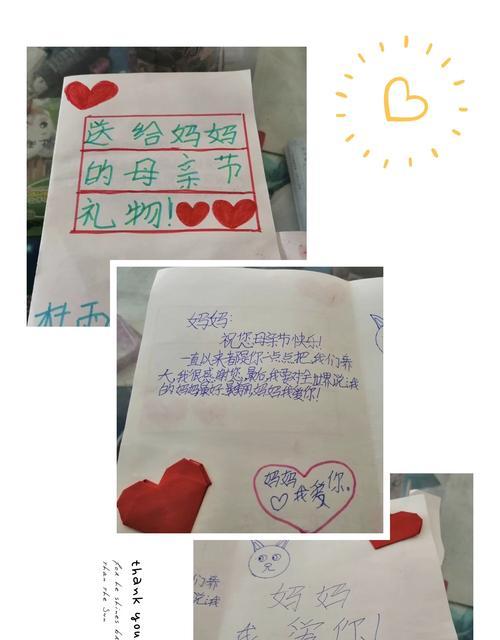 送给妈妈
的母亲节
礼物!
妈妈:
祝您母亲节快乐!
一直以来都是你一点点把我们养
大,我很感谢您,最后,我要对全世界说:我
的妈妈最好,最棒,妈妈我爱你!
妈妈
我爱你。
们养
说:我
妈妈
我爱你!
thank you
for he shines be
than the Sun